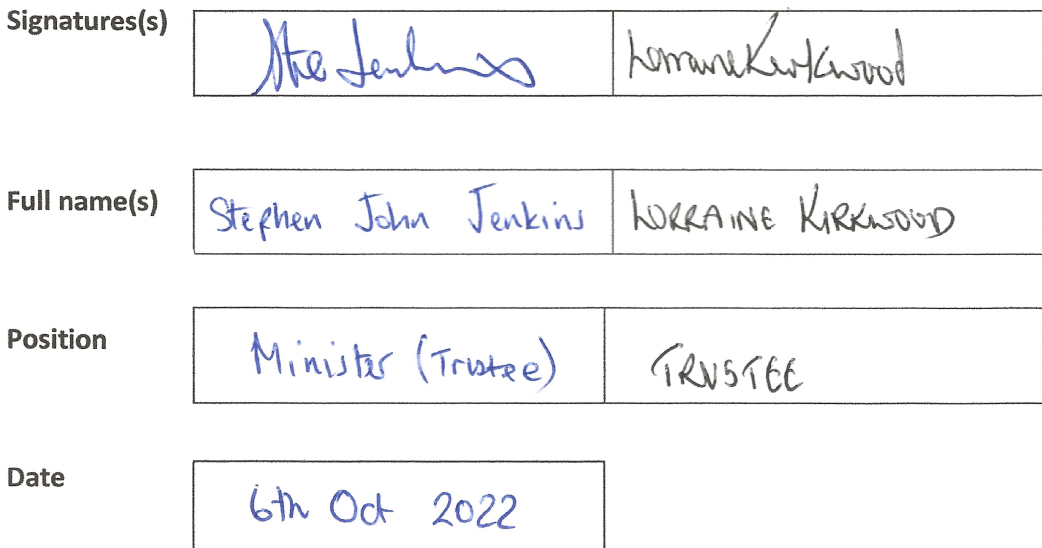 Signatures(s)
Ste Jenkins Lorraine Kirkwood
Full name(s) Stephen John Jenkins LORRAINE KIRKWOOD
Position Minister (Trustee) TRUSTEE
Date 6th Oct 2022